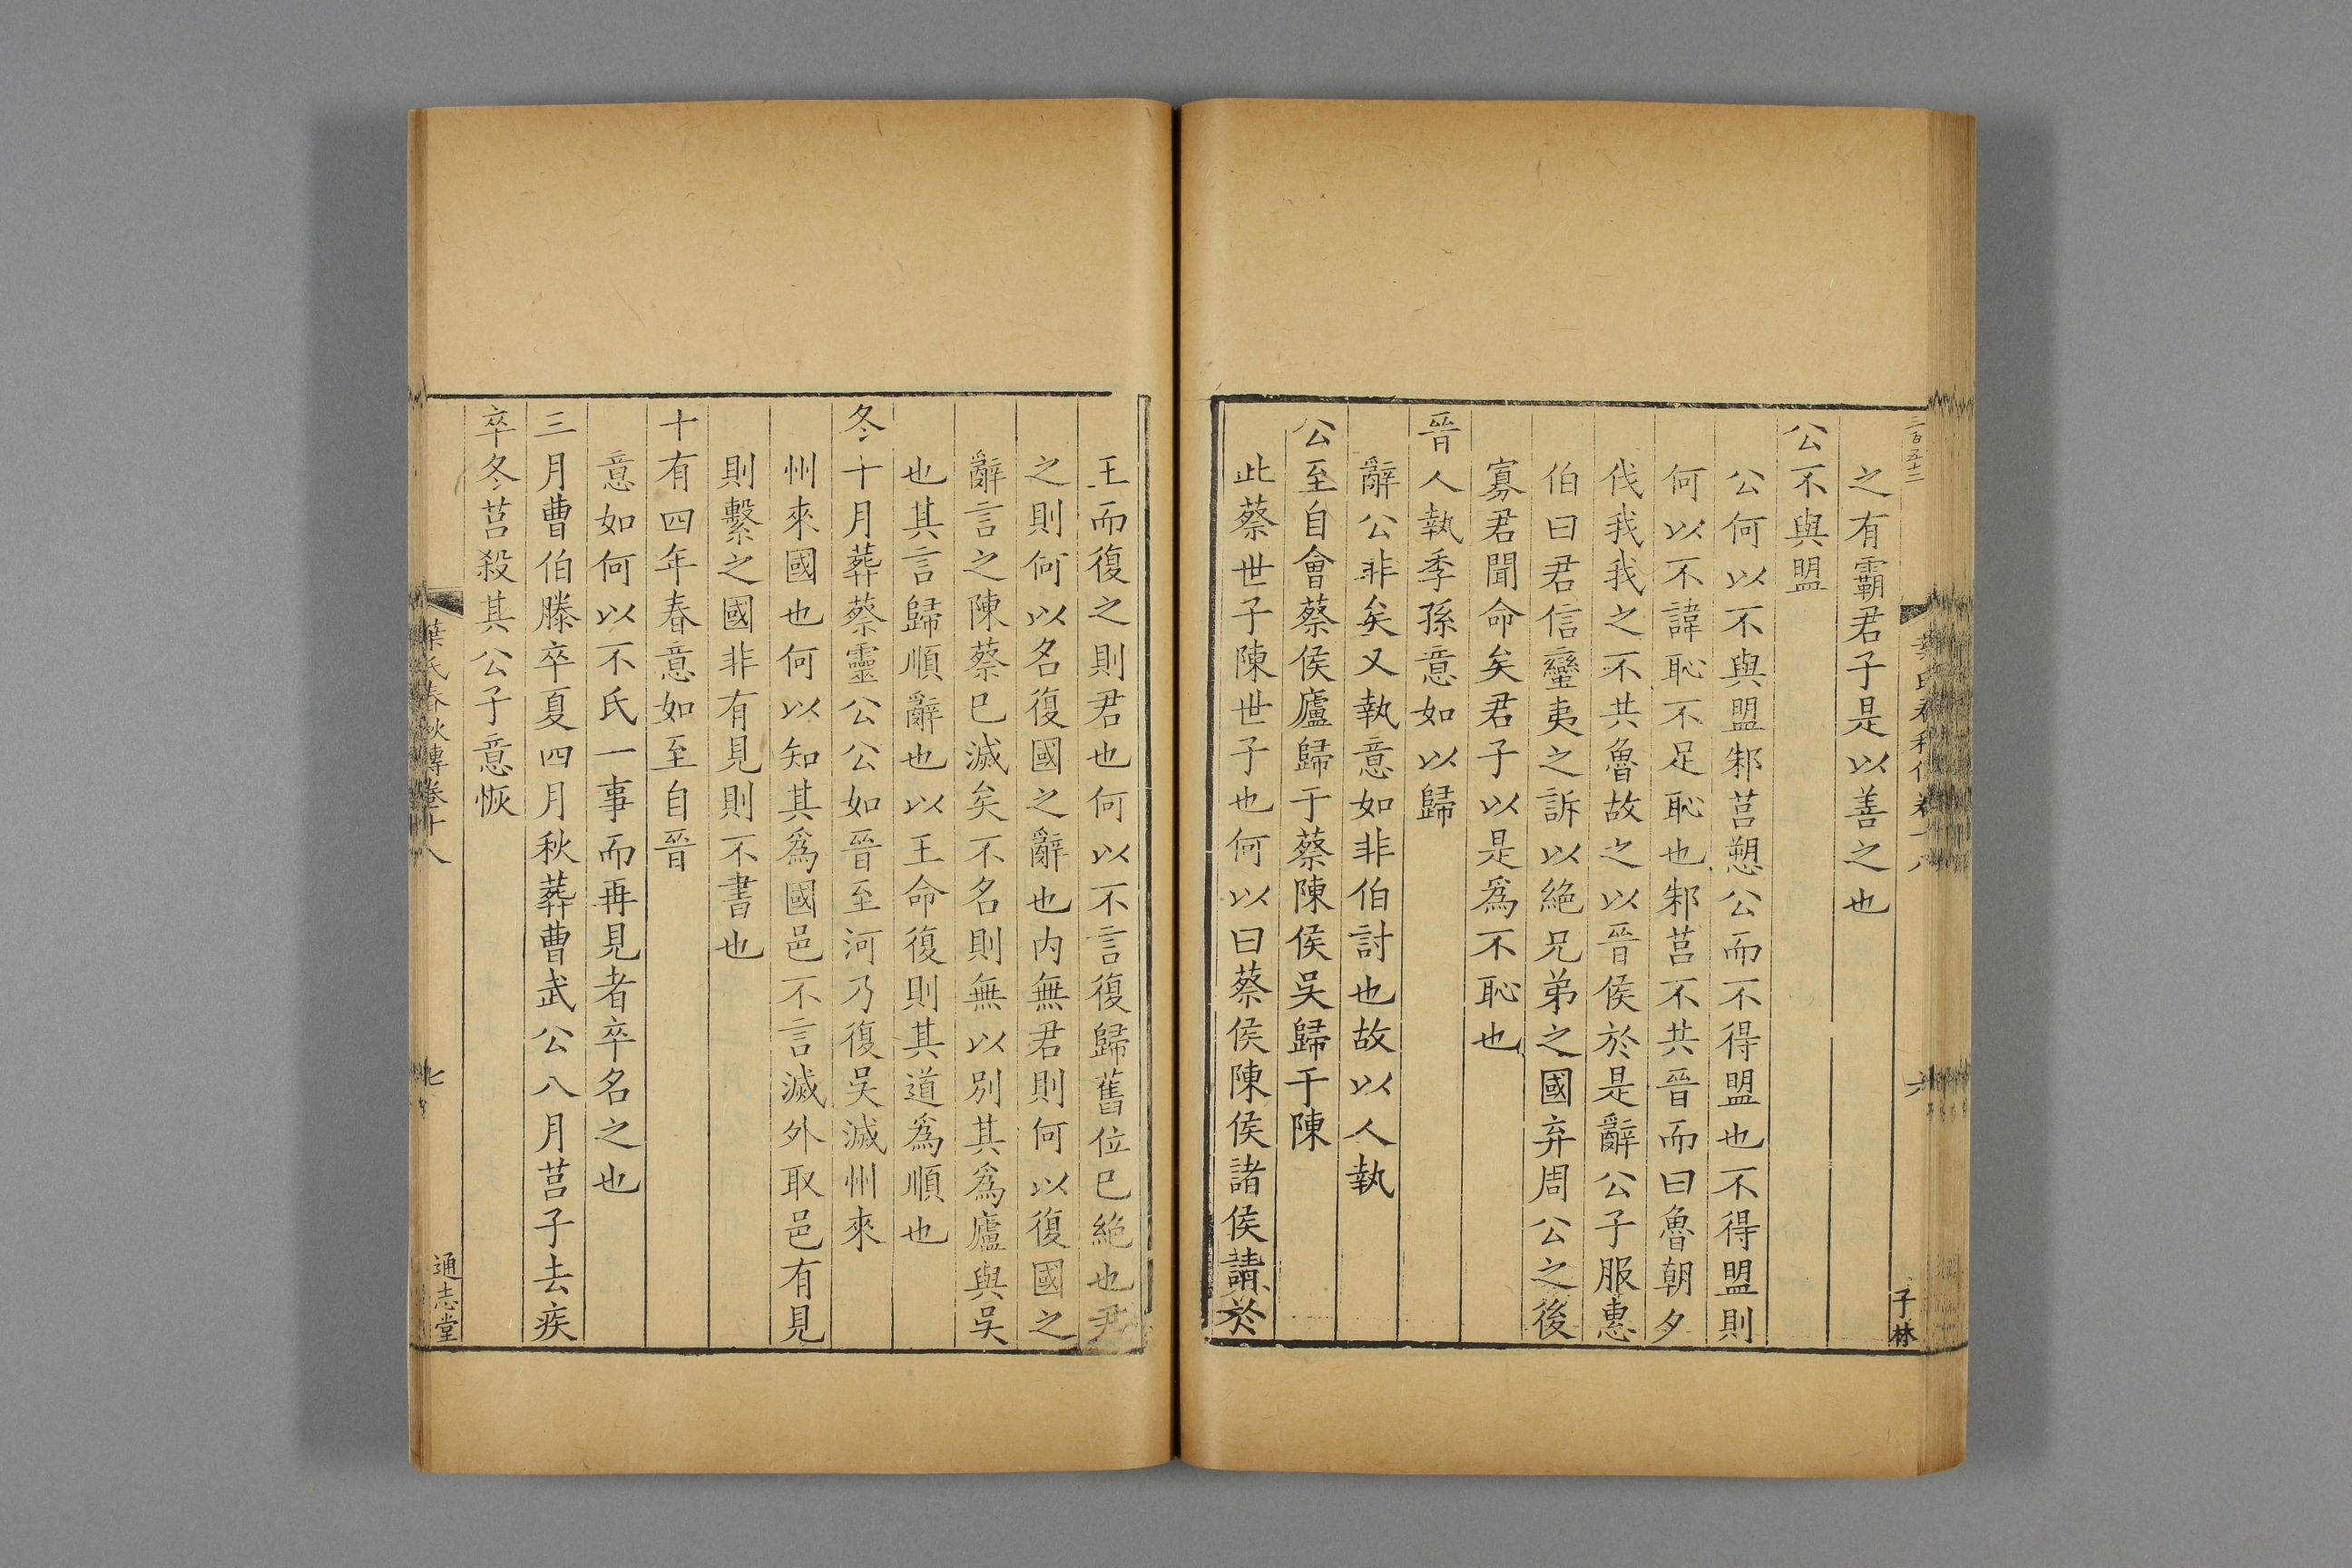 三百五十二
子林
六
之有霸君子是以善之也
公不與盟
公何以不與盟邾莒愬公而不得盟也不得盟則
何以不諱恥不足恥也邾莒不共晉而曰魯朝夕
伐我我之不共魯故之以晉侯於是辭公子服惠
伯曰君信蠻夷之訴以絶兄弟之國弃周公之後
寡君聞命矣君子以是爲不恥也
晉人執季孫意如以歸
辭公非矣又執意如非伯討也故以人執
公至自會蔡侯廬歸于蔡陳侯吳歸于陳
此蔡世子陳世子也何以曰蔡侯陳侯諸侯請於
王而復之則君也何以不言復歸舊位已絶也
之則何以名復國之辭也内無君則何以復國之
辭言之陳蔡已滅矣不名則無以别其爲廬與吳
也其言歸順辭也以王命復則其道爲順也
冬十月葬蔡靈公公如晉至河乃復吳滅州來
州來國也何以知其爲國邑不言滅外取邑有見
則繫之國非有見則不書也
十有四年春意如至自晉
意如何以不氏一事而再見者卒名之也
三月曹伯滕卒夏四月秋葬曹武公八月莒子去疾
卒冬莒殺其公子意恢
葉氏春秋傳卷十八
七
通志堂